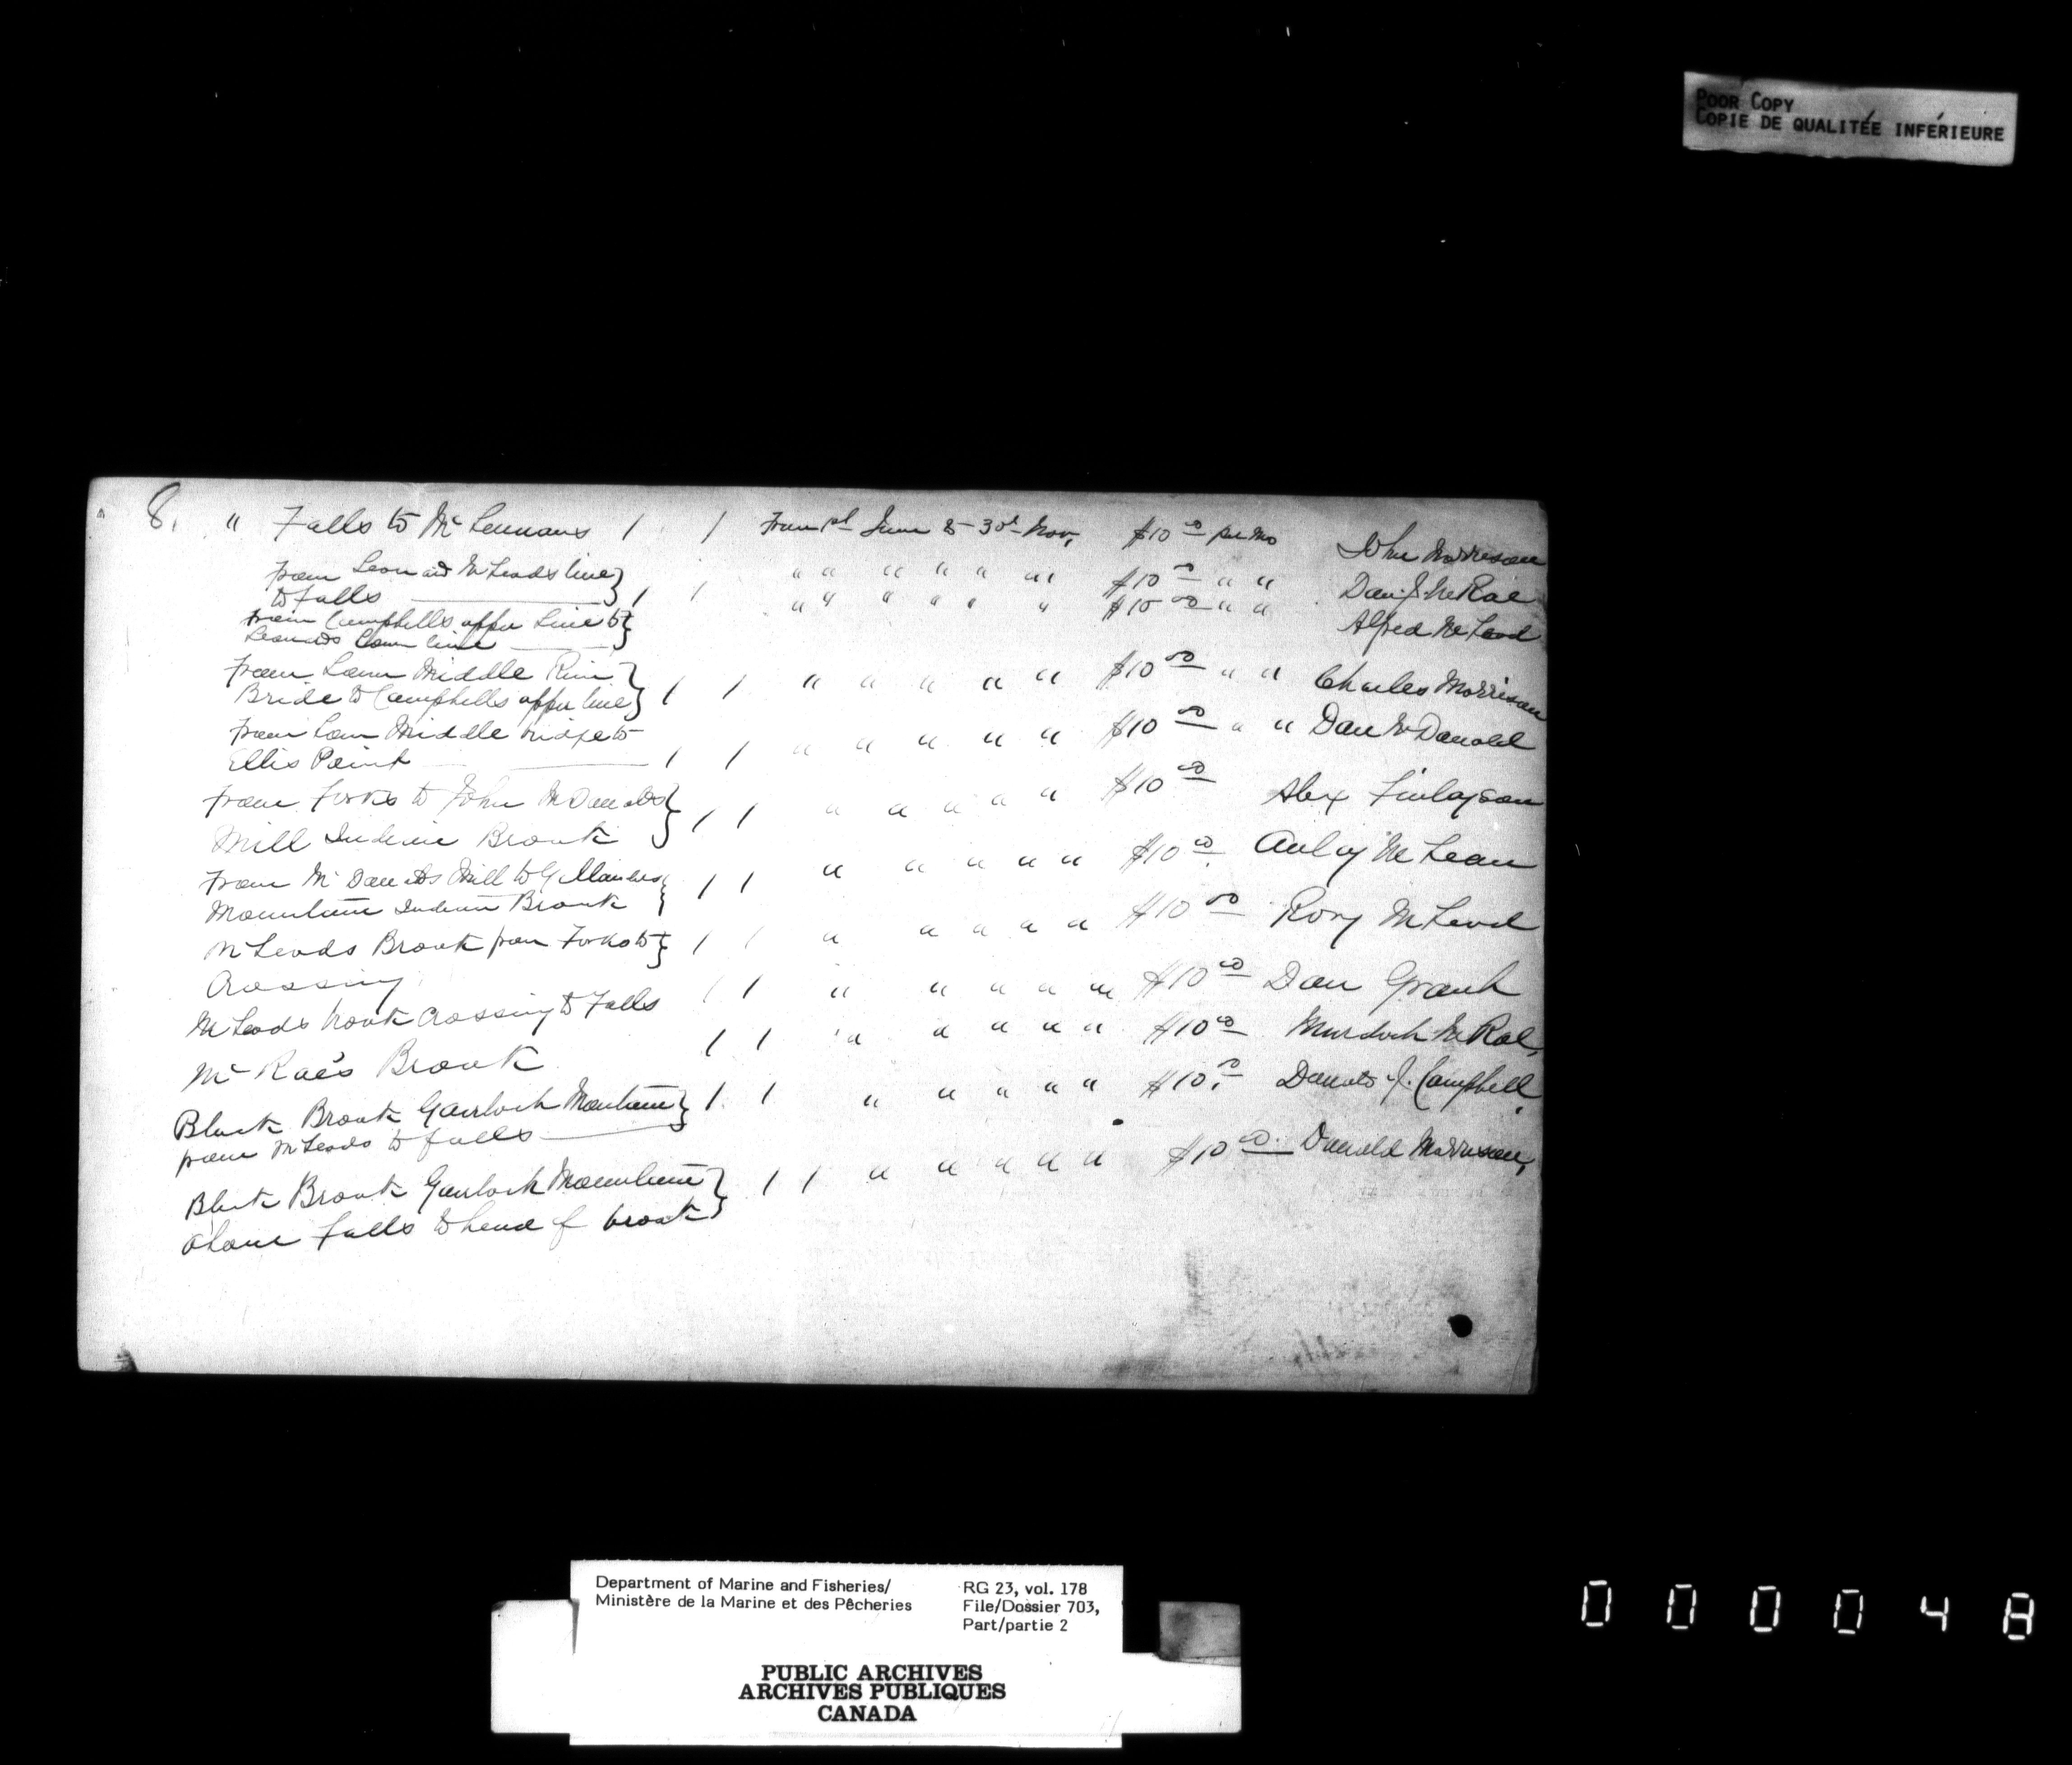 POOR COPY
COPIE DE QUALITÉE INFÉRIEURE
8. " Falls to McLennans 1 1 From 1st June to 30th Nov. $10 00 per Mo John Morrison
from Leonard McLeods line } 1 1 " " " " " " $10 00 " " Dan J. McRae
to falls
from Campbells upper Line to } " " " " " " $10 00 " " Alfred McLeod
Leonards line
From Middle River } 1 1 " " " " " $10 00 " " Charles Morrison
Bride to Campbells upper line }
From Middle bridge to
Ellis Point 1 1 " " " " " $10 00 " " Dan McDonald
from forks to John McDonalds } 1 1 " " " " " $10 00 Alex Finlayson
Mill Indian Brook
From McDonalds Mill to } 1 1 " " " " " $10 00 Auley McLean
Mountain Indian Brook
McLeods Brook from Forks to } 1 1 " " " " " $10 00 Rory McLeod
Crossing
McLeods brook Crossing to Falls 1 1 " " " " " $10 00 Dan Grant
McRae's Brook 1 1 " " " " " $10 00 Murdoch McRae,
Black Brook Gairloch Mountain } 1 1 " " " " " $10 00 Donald J. Campbell,
from McLeods to falls
Black Brook Gairloch Mountain } 1 1 " " " " " $10 00 Donald Morrison,
above falls to head of brook
Department of Marine and Fisheries/
Ministère de la Marine et des Pêcheries
RG 23, vol. 178
File/Dossier 703,
Part/partie 2
PUBLIC ARCHIVES
ARCHIVES PUBLIQUES
CANADA
000048